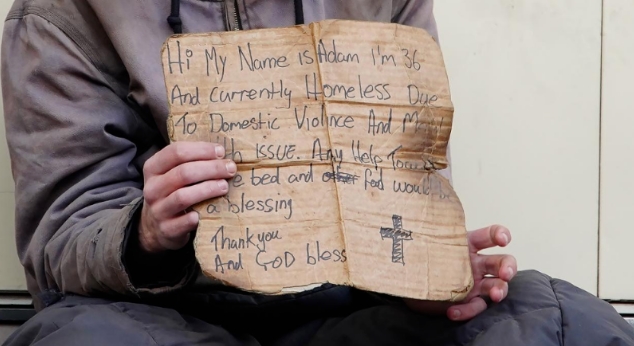 Hi My Name is Adam I'm 36
And Currently Homeless Due
To Domestic Violnce And
ISSUE. Any Help
bed and food would
a blessing
Thank you
And GOD bless